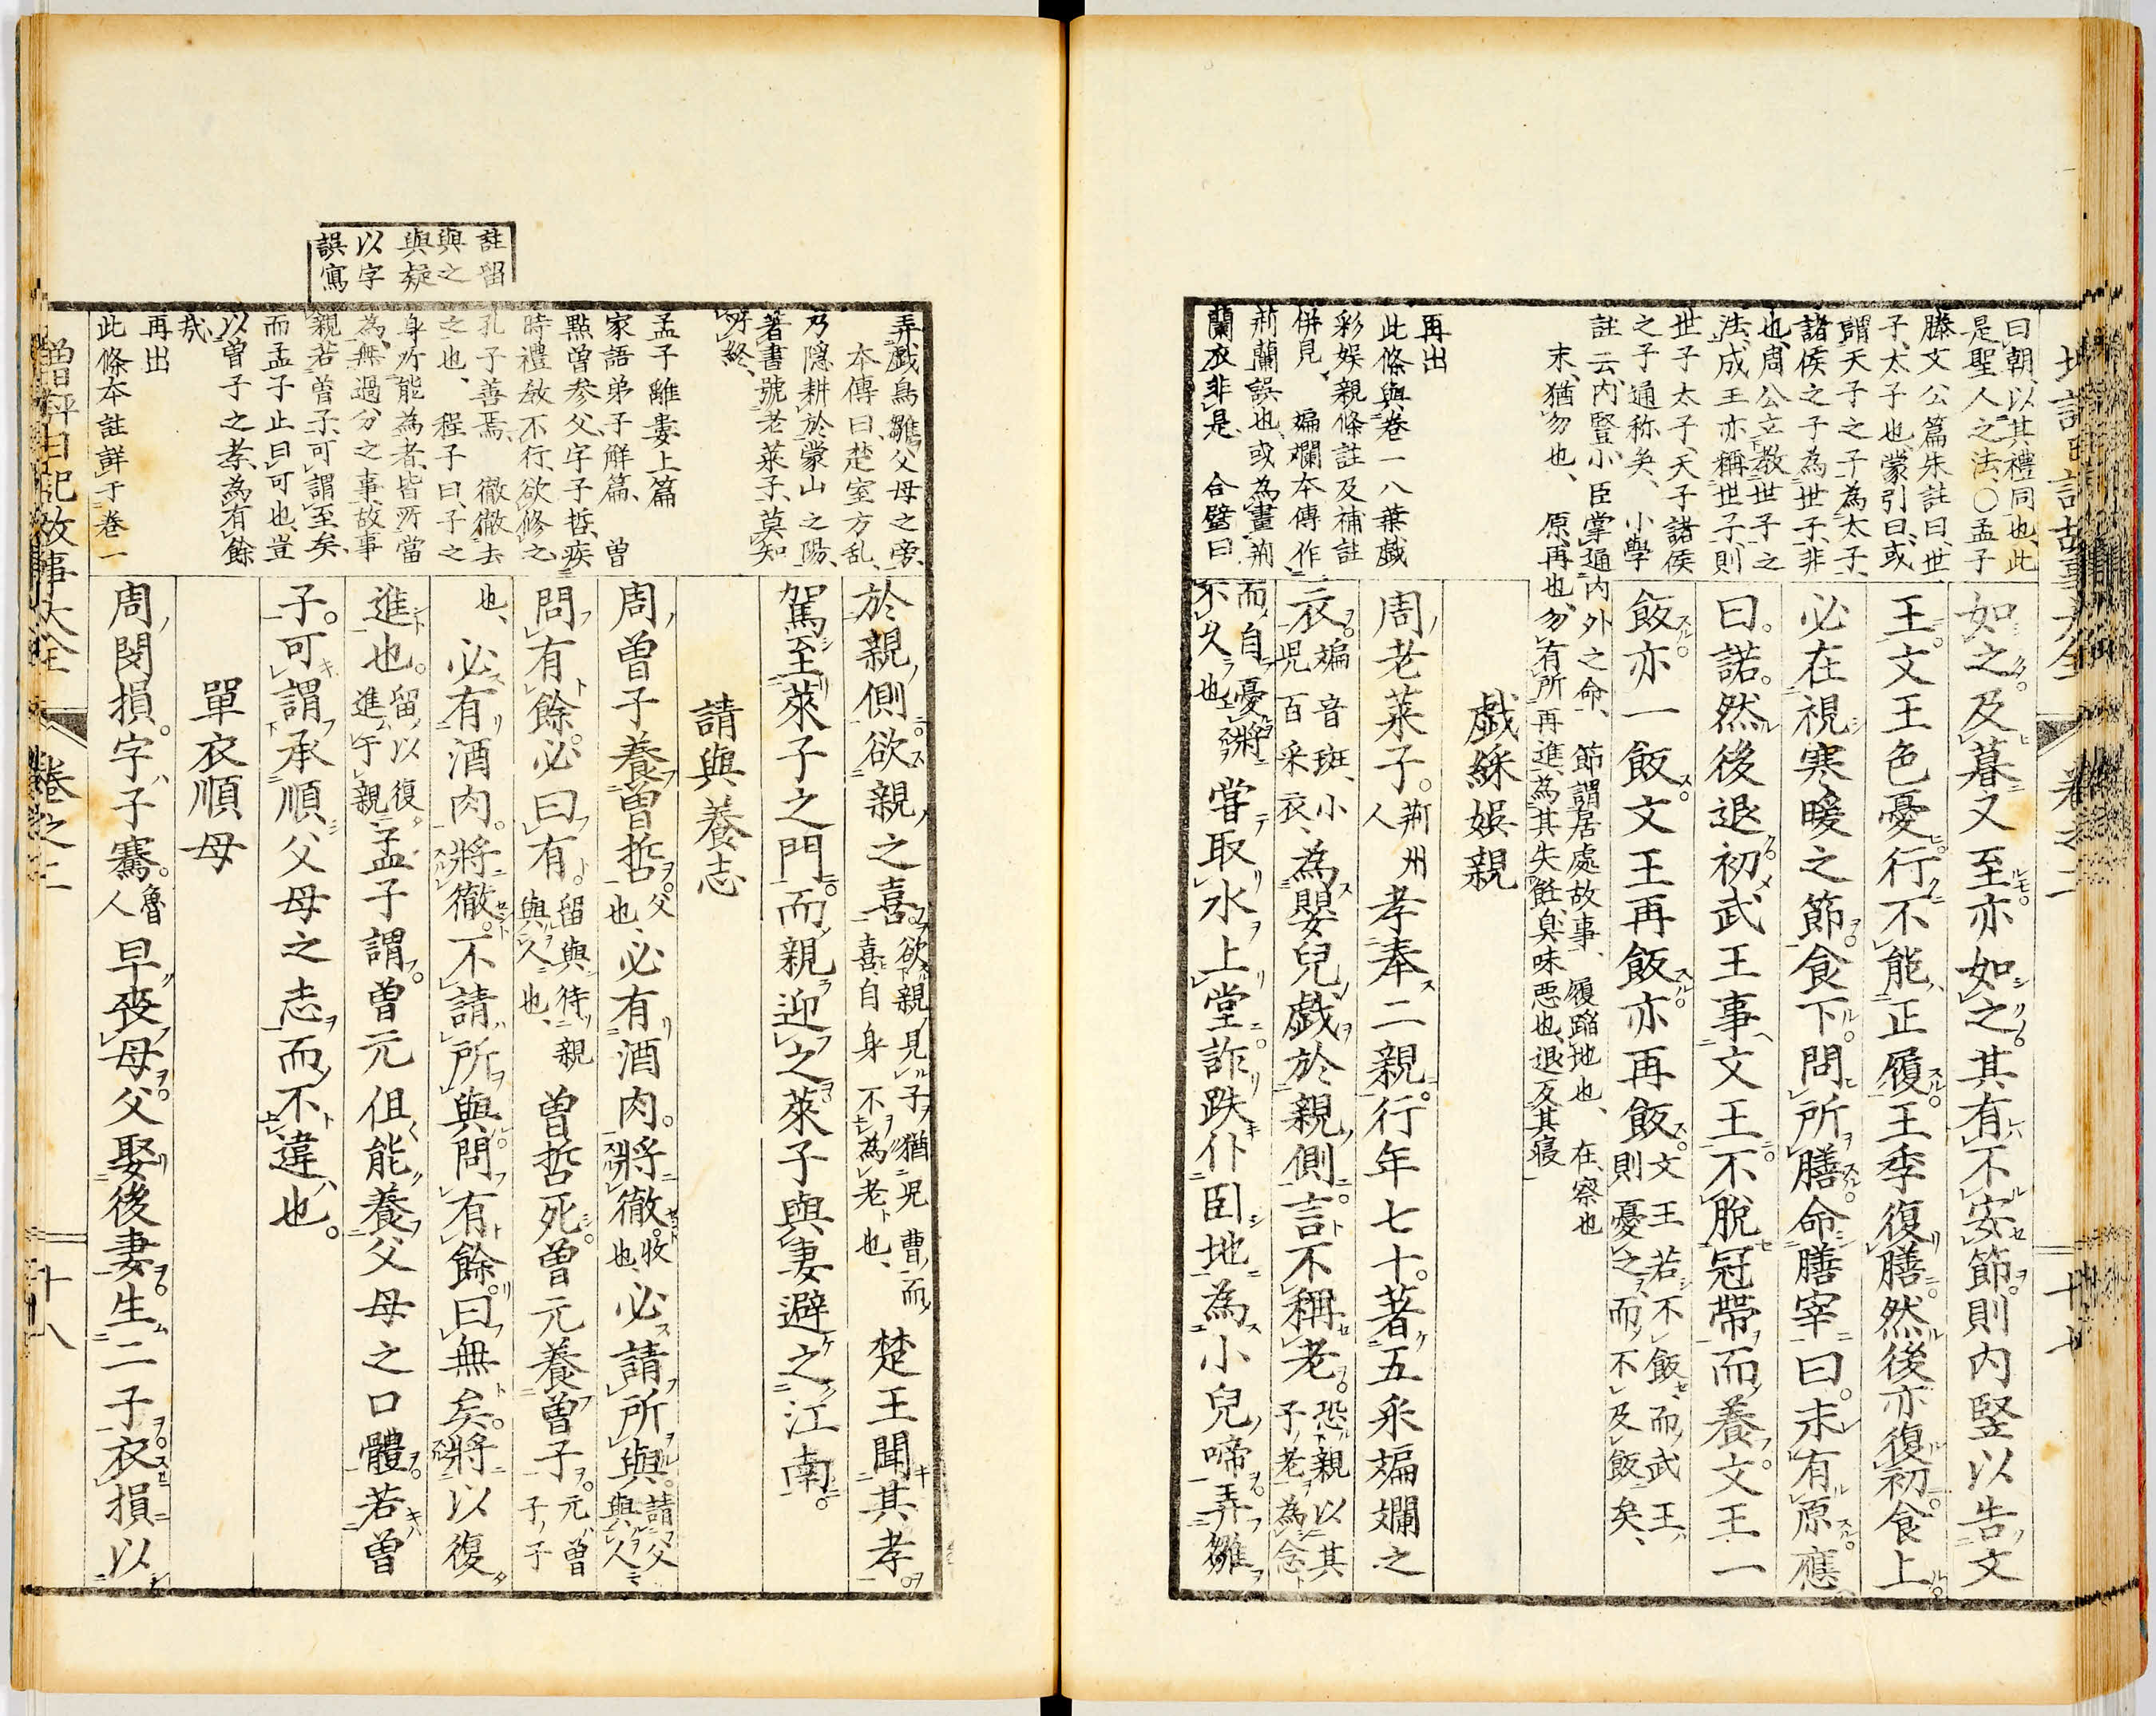 曰朝、以其禮同也、此
是聖人之法、○孟子
滕文公篇朱註曰、世
子、太子也、蒙引曰、或
謂天子之子為太子、
諸侯之子為世子、非
也、周公立敎世子之
法、成王亦稱世子、則
世子太子、天子諸侯
之子通称矣、 小學
註云、内豎、小臣掌通内外之命、 節謂居處故事、 履蹈地也、 在、察也
末、猶勿也、 原、再也、勿有所再進、為其失飪臭味悪也、退反其寝
再出
此條與卷一八葉戯
彩娯親條註及補註
併見、 斒斕本傳作
荊蘭誤也、或為畫荊
蘭衣非是 合璧曰
如之及暮又至亦如之其有不安節則内竪以告文
王文王色憂行不能正履王季復膳然後亦復初食上
必在視寒暖之節食下問所膳命膳宰曰末有原應
曰諾然後退初武王事文王不脫冠帶而養文王一
飯亦一飯文王再飯亦再飯文王若不飯而武王
則憂之而不及飯矣、
戯綵娯親
周老萊子荊州人孝奉二親行年七十著五采斒斕之
衣斒音斑、小児百采衣、為嬰兒戯於親側言不稱老恐親以其
子老為念
而自憂將不久也嘗取水上堂詐跌仆臥地為小兒啼弄雛
十七
註留
與之
與疑
以字
誤寫
弄戯烏雛父母之旁
本傳曰、楚室方乱、
乃隠耕於蒙山之陽、
著書號老萊子、莫知
所終、
孟子離婁上篇
家語弟子解篇、 曽
點曽参父、字子晳、疾
時禮敎不行、欲修之、
孔子善焉、 徹徹去
之也、 程子曰、子之
身所能為者、皆所當
為、無過分之事、故事
親若曽子、可謂至矣、
而孟子止曰可也、豈
以曽子之孝、為有餘
哉
再出
此條本註詳于卷一
於親側欲親之喜欲親見子猶児曹而
喜、自身不為老也、楚王聞其孝
駕至萊子之門而親迎之萊子與妻避之江南
請與養志
周曽子養曽晳父也、必有酒肉將徹收也、必請所與請父
與人
問有餘必曰有留與待親
與人也、曽晳死曽元養曽子元曽
子子
也、必有酒肉將徹不請所與問有餘曰無矣將以復
進也留以復
進于親孟子謂曽元但能養父母之口體若曽
子可謂承順父母之志而不違也
單衣順母
周閔損字子騫魯人早喪母父娶後妻生二子衣損以
曽評日記故事大全 卷之二 十八